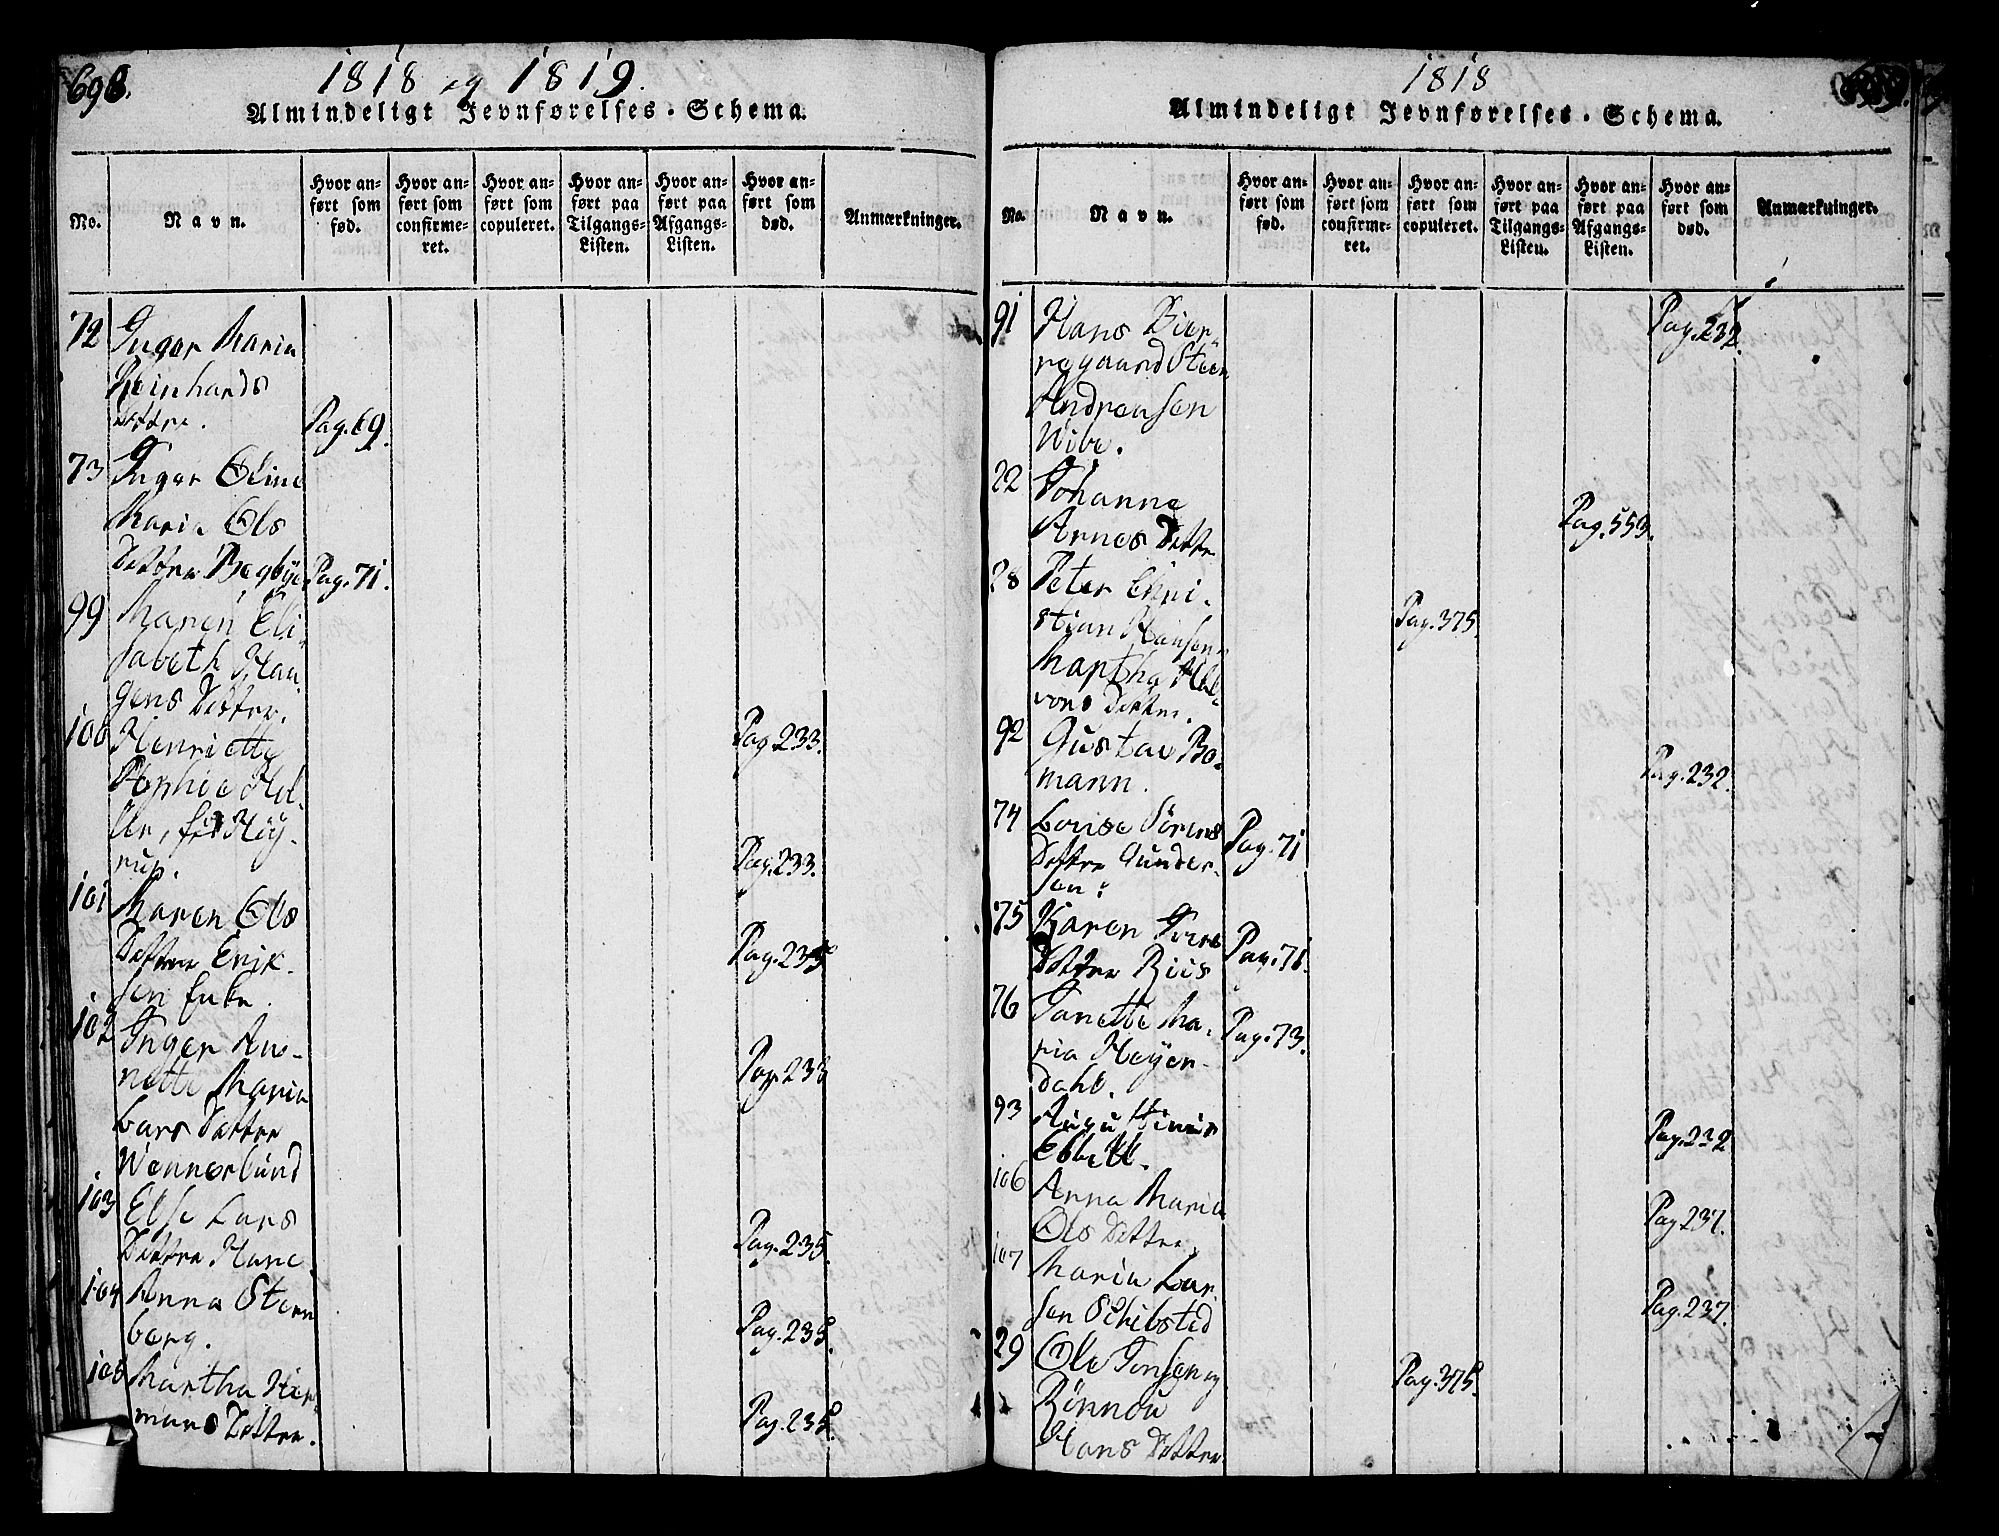 698.
1818 og 1819.
Almindeligt Jevnførelses-Schema.
No.
Navn.
Hvor an-
ført som
fød.
Hvor an-
ført som
confirme-
ret.
Hvor an-
ført som
copuleret.
Hvor an-
ført paa
Tilgangs-
Listen.
Hvor an-
ført paa
Afgangs-
Listen.
Hvor an-
ført som
død.
Anmærkninger.
72 Inger Maria
Reinhards
Dattre. Pag. 69.
73 Inger Oline
Maria Ols
Dattre Begbye Pag. 71.
99 Maren Eli-
sabeth Hau-
gens Datter. Pag. 233.
100 Henriette
Sophie Mel-
ler, fød Høy-
rup. Pag. 233.
101 Maren Ols
Dattre Erik-
sen Enke. Pag. 235
102 Inger An-
nette Maria
Lars Dattre
Wennerlund Pag. 233
103 Else Lars
Dattre Hane Pag. 235
104 Anna Steen
berg. Pag. 235.
105 Martha Her-
mans Dattre. Pag. 235.
1818
699.
Almindeligt Jevnførelses-Schema.
No.
Navn.
Hvor an-
ført som
fød.
Hvor an-
ført som
confirme-
ret.
Hvor an-
ført som
copuleret.
Hvor an-
ført paa
Tilgangs-
Listen.
Hvor an-
ført paa
Afgangs-
Listen.
Hvor an-
ført som
død.
Anmærkninger.
91 Hans Bier- Pag. 232.
regaard Steen
Andreasen
Wibe.
22 Johanne
Arnes Dattre Pag. 559.
28 Peter Chri-
stian Hansen Pag. 375.
Martha Hal-
vors Dattre.
92 Gustav Bo-
mann. Pag. 232.
74 Louise Sørens
Dattre Gunder- Pag. 71
sen
75 Karen Ivers
Dattre Riis Pag. 71.
76 Janette Ma-
ria Heyer- Pag. 73.
dahl.
93
Ebbell. Pag. 232
106 Anna Maria
Ols Dattre. Pag. 237.
107 Maria Lar-
sen Schibsted Pag. 237.
29 Ole Jensen og
Rønnou Pag. 375.
Hans Dattre